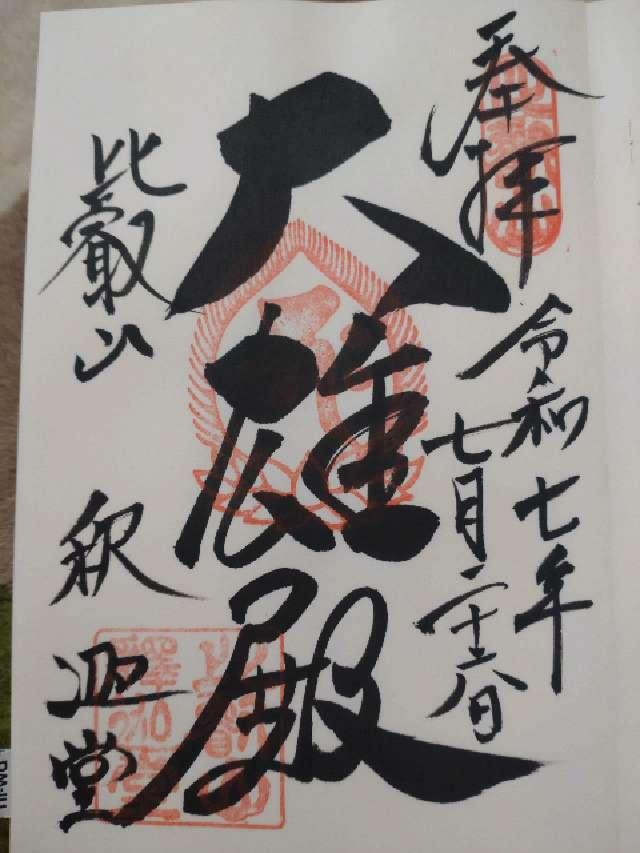 奉拝
令和七年
七月二十六日
大雄殿
比叡山
釈迦堂